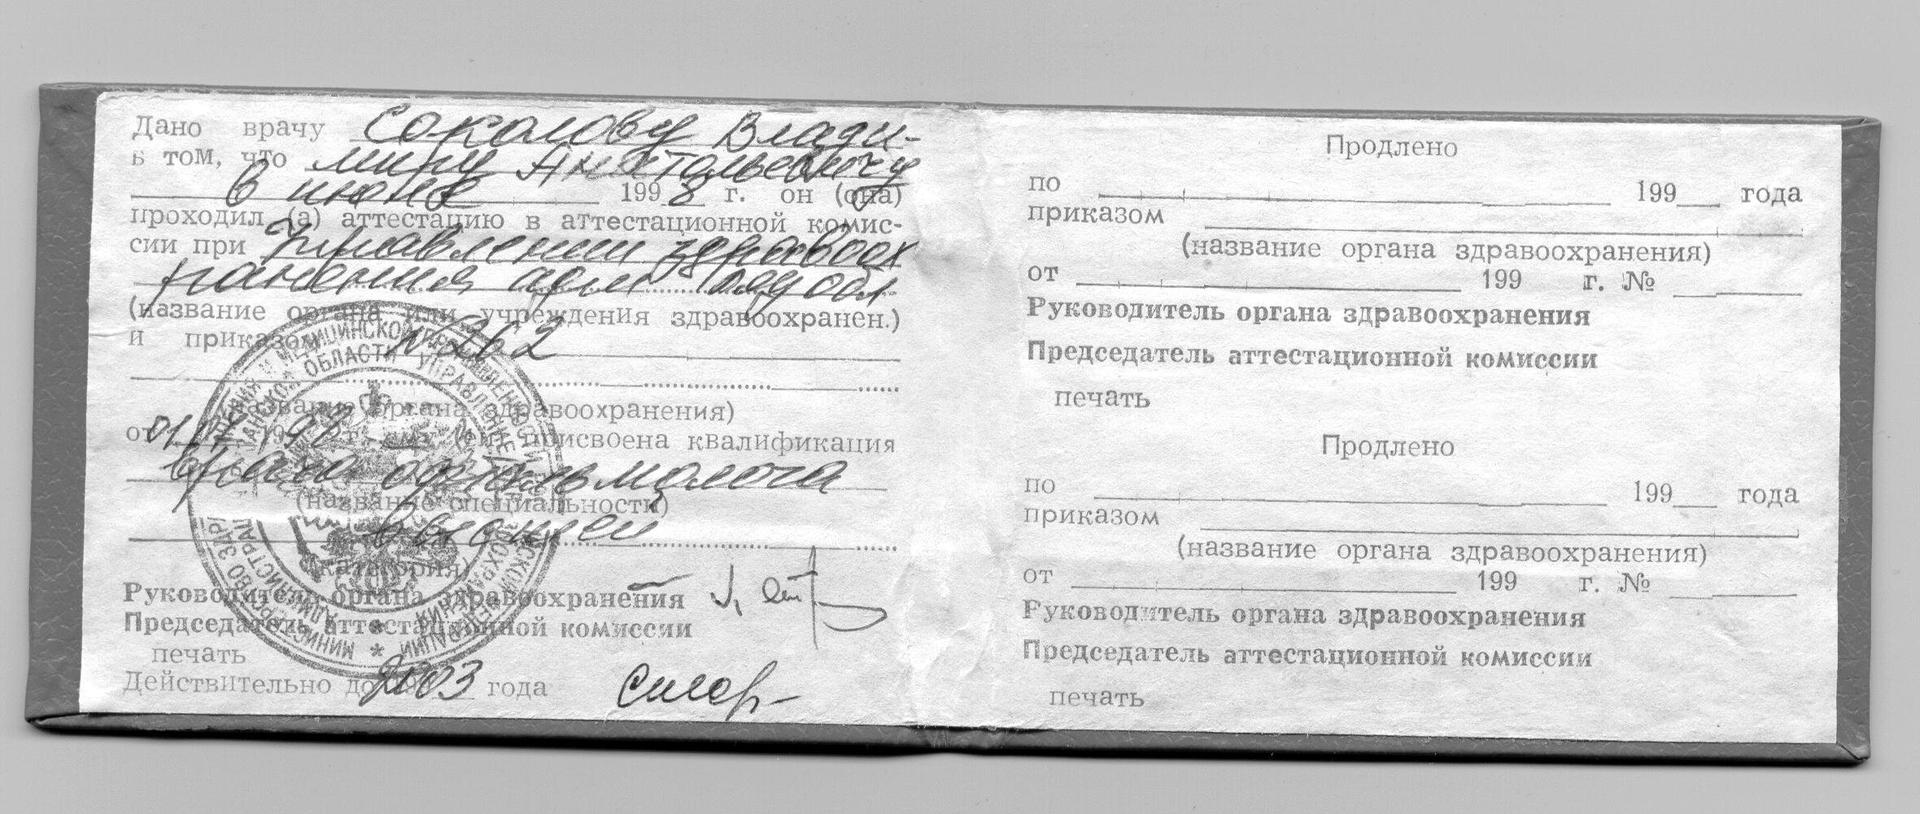 Дано врачу Соколову Влади-
в том, что миру Анатольевичу
в июне 1998 г. он (она)
проходил (а) аттестацию в аттестационной комис-
сии при Управлении здравоох
ранения адм обл
(название органа или учреждения здравоохранен.)
и приказом N 262
(название органа здравоохранения)
от 01.07.1998 г. ему (ей) присвоена квалификация
врача офтальмолога
(название специальности)
высшей
(категория)
Руководитель органа здравоохранения
Председатель аттестационной комиссии
печать
Действительно до 2003 года
Продлено
по 199 года
приказом
(название органа здравоохранения)
от 199 г. №
Руководитель органа здравоохранения
Председатель аттестационной комиссии
печать
Продлено
по 199 года
приказом
(название органа здравоохранения)
от 199 г. №
Руководитель органа здравоохранения
Председатель аттестационной комиссии
печать